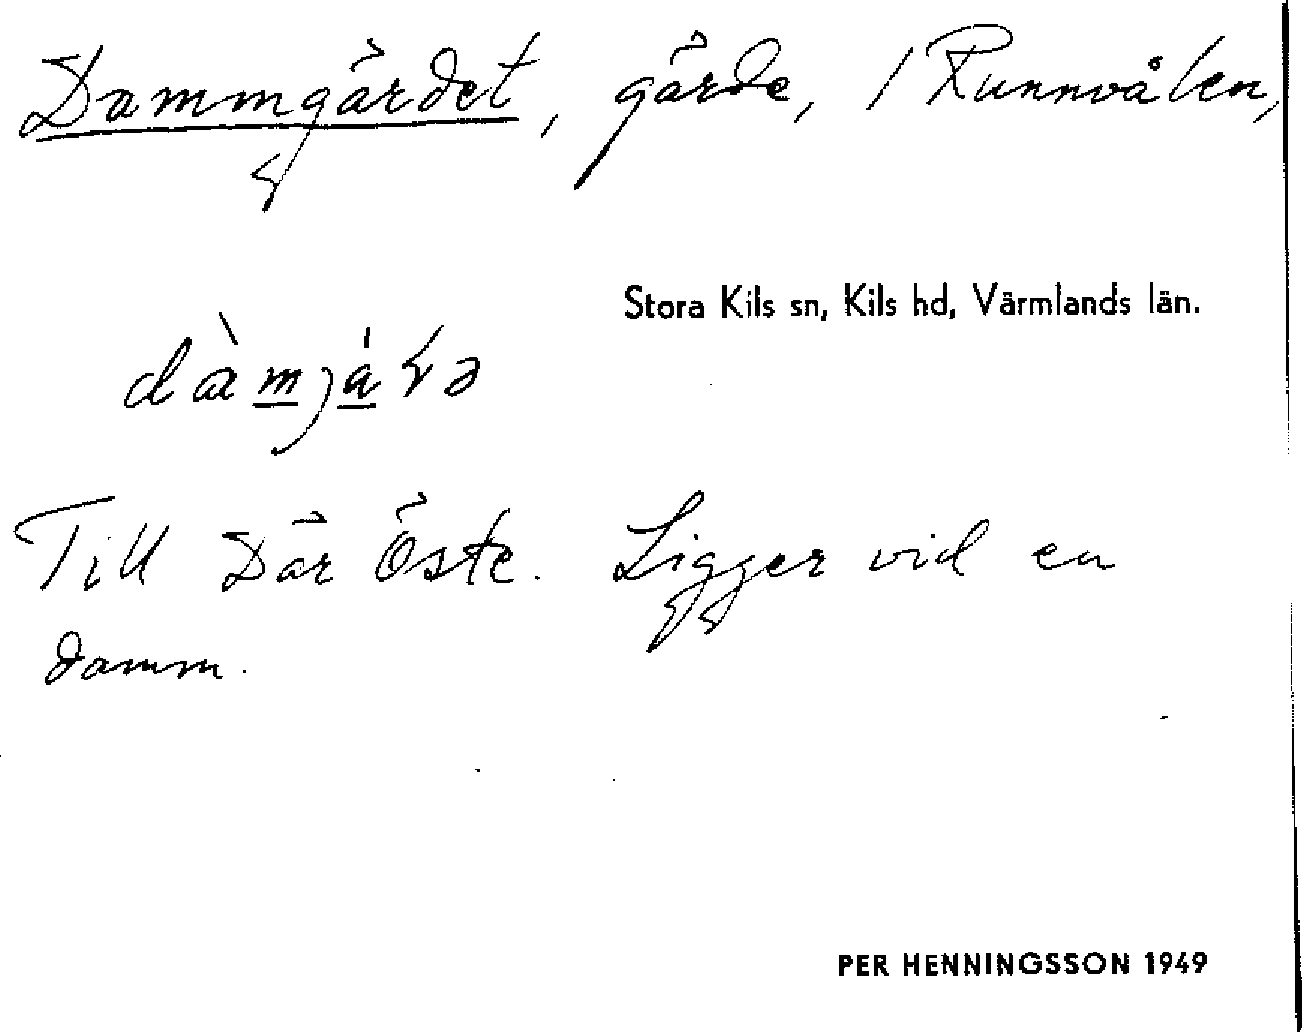 Dammgärdet, gärde, 1 Runnvålen,
Stora Kils sn, Kils hd, Värmlands län.
Till Där Öste. Ligger vid en
damm.
PER HENNINGSSON 1949